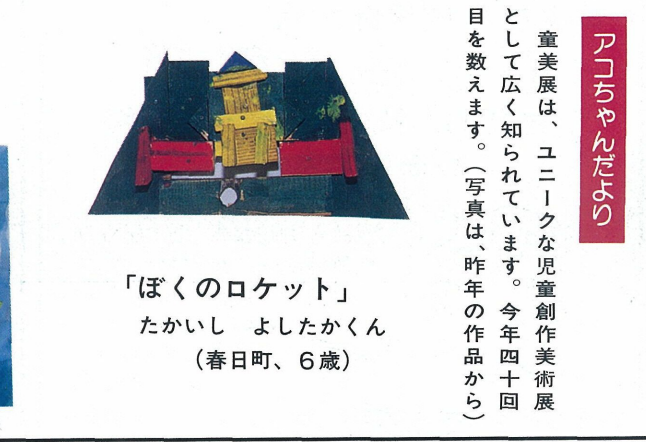 アコちゃんだより
童美展は、ユニークな児童創作美術展
として広く知られています。今年四十回
目を数えます。(写真は、昨年の作品から)
「ぼくのロケット」
たかいし よしたかくん
(春日町、6歳)